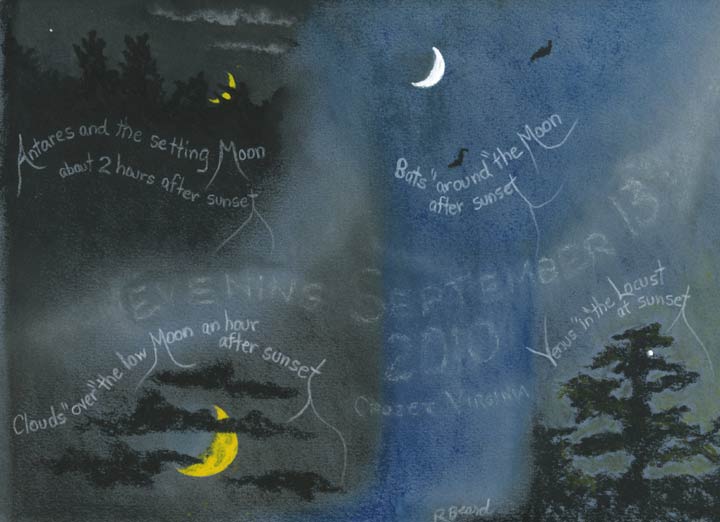 Antares and the setting Moon
about 2 hours after sunset
Bats "around" the Moon
after sunset
EVENING SEPTEMBER 13
2010
CROZET VIRGINIA
Venus "in" the Locust
at sunset
Clouds "over" the low Moon an hour
after sunset
R Beard